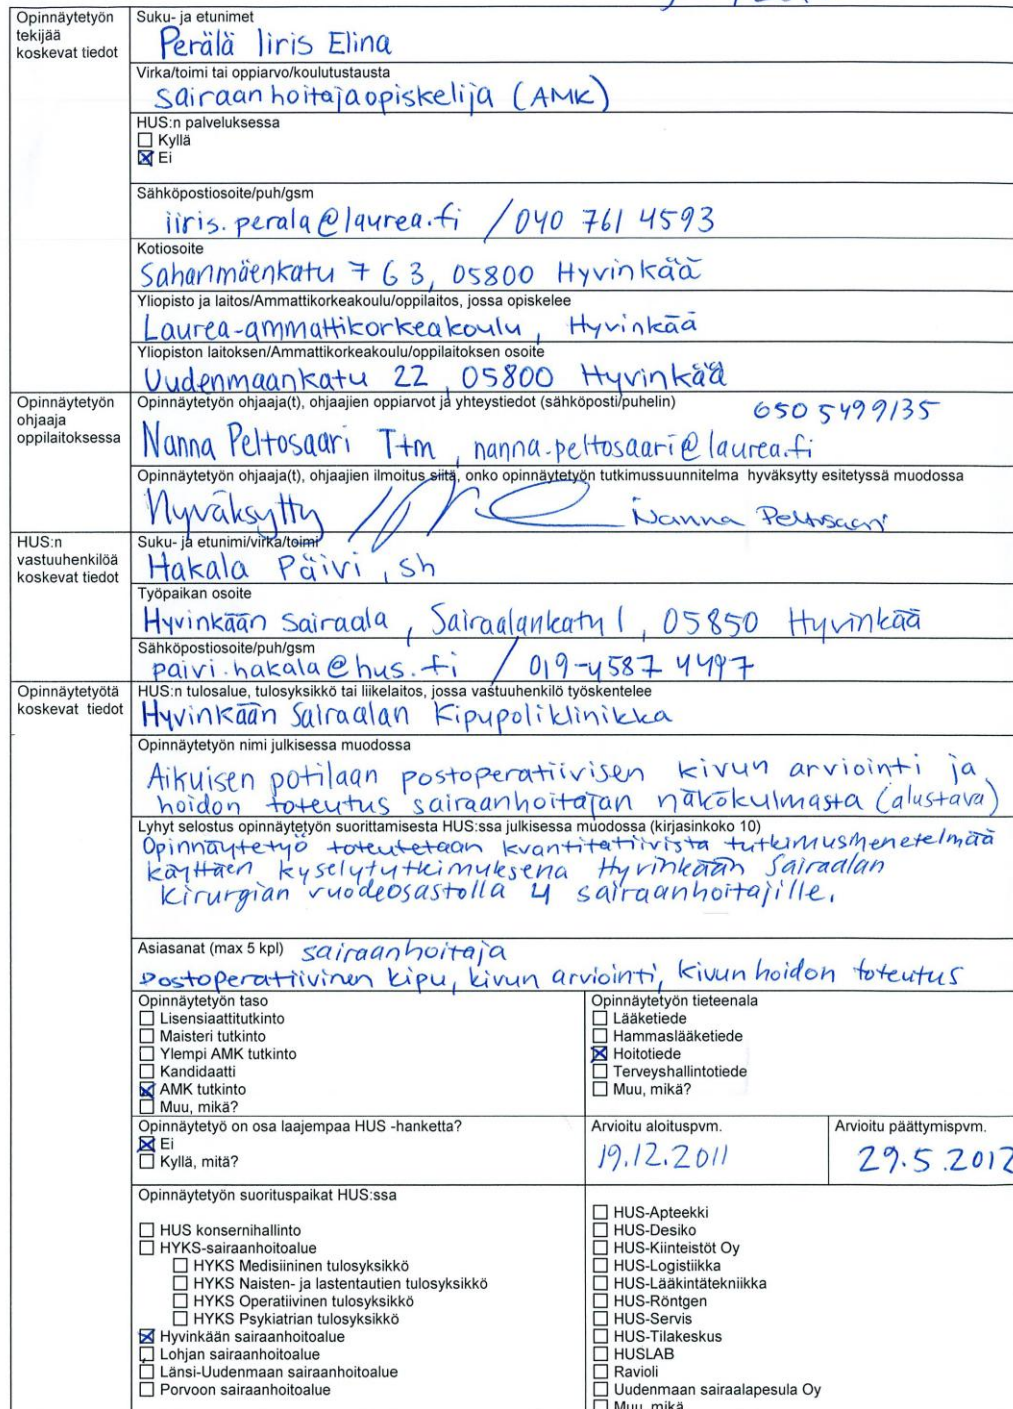 Opinnäytetyön
tekijää
koskevat tiedot
Suku- ja etunimet
Perälä Iiris Elina
Virka/toimi tai oppiarvo/koulutustausta
Sairaanhoitajaopiskelija (AMK)
HUS:n palveluksessa
☐ Kyllä
☒ Ei
Sähköpostiosoite/puh/gsm
iiris.perala@laurea.fi / 040 761 4593
Kotiosoite
Sahanmäenkatu 7 G 3, 05800 Hyvinkää
Yliopisto ja laitos/Ammattikorkeakoulu/oppilaitos, jossa opiskelee
Laurea-ammattikorkeakoulu, Hyvinkää
Yliopiston laitoksen/Ammattikorkeakoulu/oppilaitoksen osoite
Uudenmaankatu 22, 05800 Hyvinkää
Opinnäytetyön
ohjaaja
oppilaitoksessa
Opinnäytetyön ohjaaja(t), ohjaajien oppiarvot ja yhteystiedot (sähköposti/puhelin)
Nanna Peltosaari Ttm, nanna.peltosaari@laurea.fi
Opinnäytetyön ohjaaja(t), ohjaajien ilmoitus siitä, onko opinnäytetyön tutkimussuunnitelma hyväksytty esitetyssä muodossa
Hyväksytty Nanna Peltosaari
HUS:n
vastuuhenkilöä
koskevat tiedot
Suku- ja etunimi/virka/toimi
Hakala Päivi, sh
Työpaikan osoite
Hyvinkään Sairaala, Sairaalankatu 1, 05850 Hyvinkää
Sähköpostiosoite/puh/gsm
paivi.hakala@hus.fi / 019-4587 4497
Opinnäytetyötä
koskevat tiedot
HUS:n tulosalue, tulosyksikkö tai liikelaitos, jossa vastuuhenkilö työskentelee
Hyvinkään Sairaalan Kipupoliklinikka
Opinnäytetyön nimi julkisessa muodossa
Aikuisen potilaan postoperatiivisen kivun arviointi ja
hoidon toteutus sairaanhoitajan näkökulmasta (alustava)
Lyhyt selostus opinnäytetyön suorittamisesta HUS:ssa julkisessa muodossa (kirjasinkoko 10)
Opinnäytetyö toteutetaan kvantitatiivista tutkimusmenetelmää
käyttäen kyselytutkimuksena Hyvinkään Sairaalan
Kirurgian vuodeosastolla 4 sairaanhoitajille.
Asiasanat (max 5 kpl) sairaanhoitaja
Postoperatiivinen kipu, kivun arviointi, kivun hoidon toteutus
Opinnäytetyön taso
☐ Lisensiaattitutkinto
☐ Maisteri tutkinto
☐ Ylempi AMK tutkinto
☐ Kandidaatti
☒ AMK tutkinto
☐ Muu, mikä?
Opinnäytetyön tieteenala
☐ Lääketiede
☐ Hammaslääketiede
☒ Hoitotiede
☐ Terveyshallintotiede
☐ Muu, mikä?
Opinnäytetyö on osa laajempaa HUS -hanketta?
☒ Ei
☐ Kyllä, mitä?
Arvioitu aloituspvm.
19.12.2011
Arvioitu päättymispvm.
29.5.2012
Opinnäytetyön suorituspaikat HUS:ssa
☐ HUS konsernihallinto
☐ HYKS-sairaanhoitoalue
☐ HYKS Medisiininen tulosyksikkö
☐ HYKS Naisten- ja lastentautien tulosyksikkö
☐ HYKS Operatiivinen tulosyksikkö
☐ HYKS Psykiatrian tulosyksikkö
☒ Hyvinkään sairaanhoitoalue
☐ Lohjan sairaanhoitoalue
☐ Länsi-Uudenmaan sairaanhoitoalue
☐ Porvoon sairaanhoitoalue
☐ HUS-Apteekki
☐ HUS-Desiko
☐ HUS-Kiinteistöt Oy
☐ HUS-Logistiikka
☐ HUS-Lääkintätekniikka
☐ HUS-Röntgen
☐ HUS-Servis
☐ HUS-Tilakeskus
☐ HUSLAB
☐ Ravioli
☐ Uudenmaan sairaalapesula Oy
☐ Muu, mikä